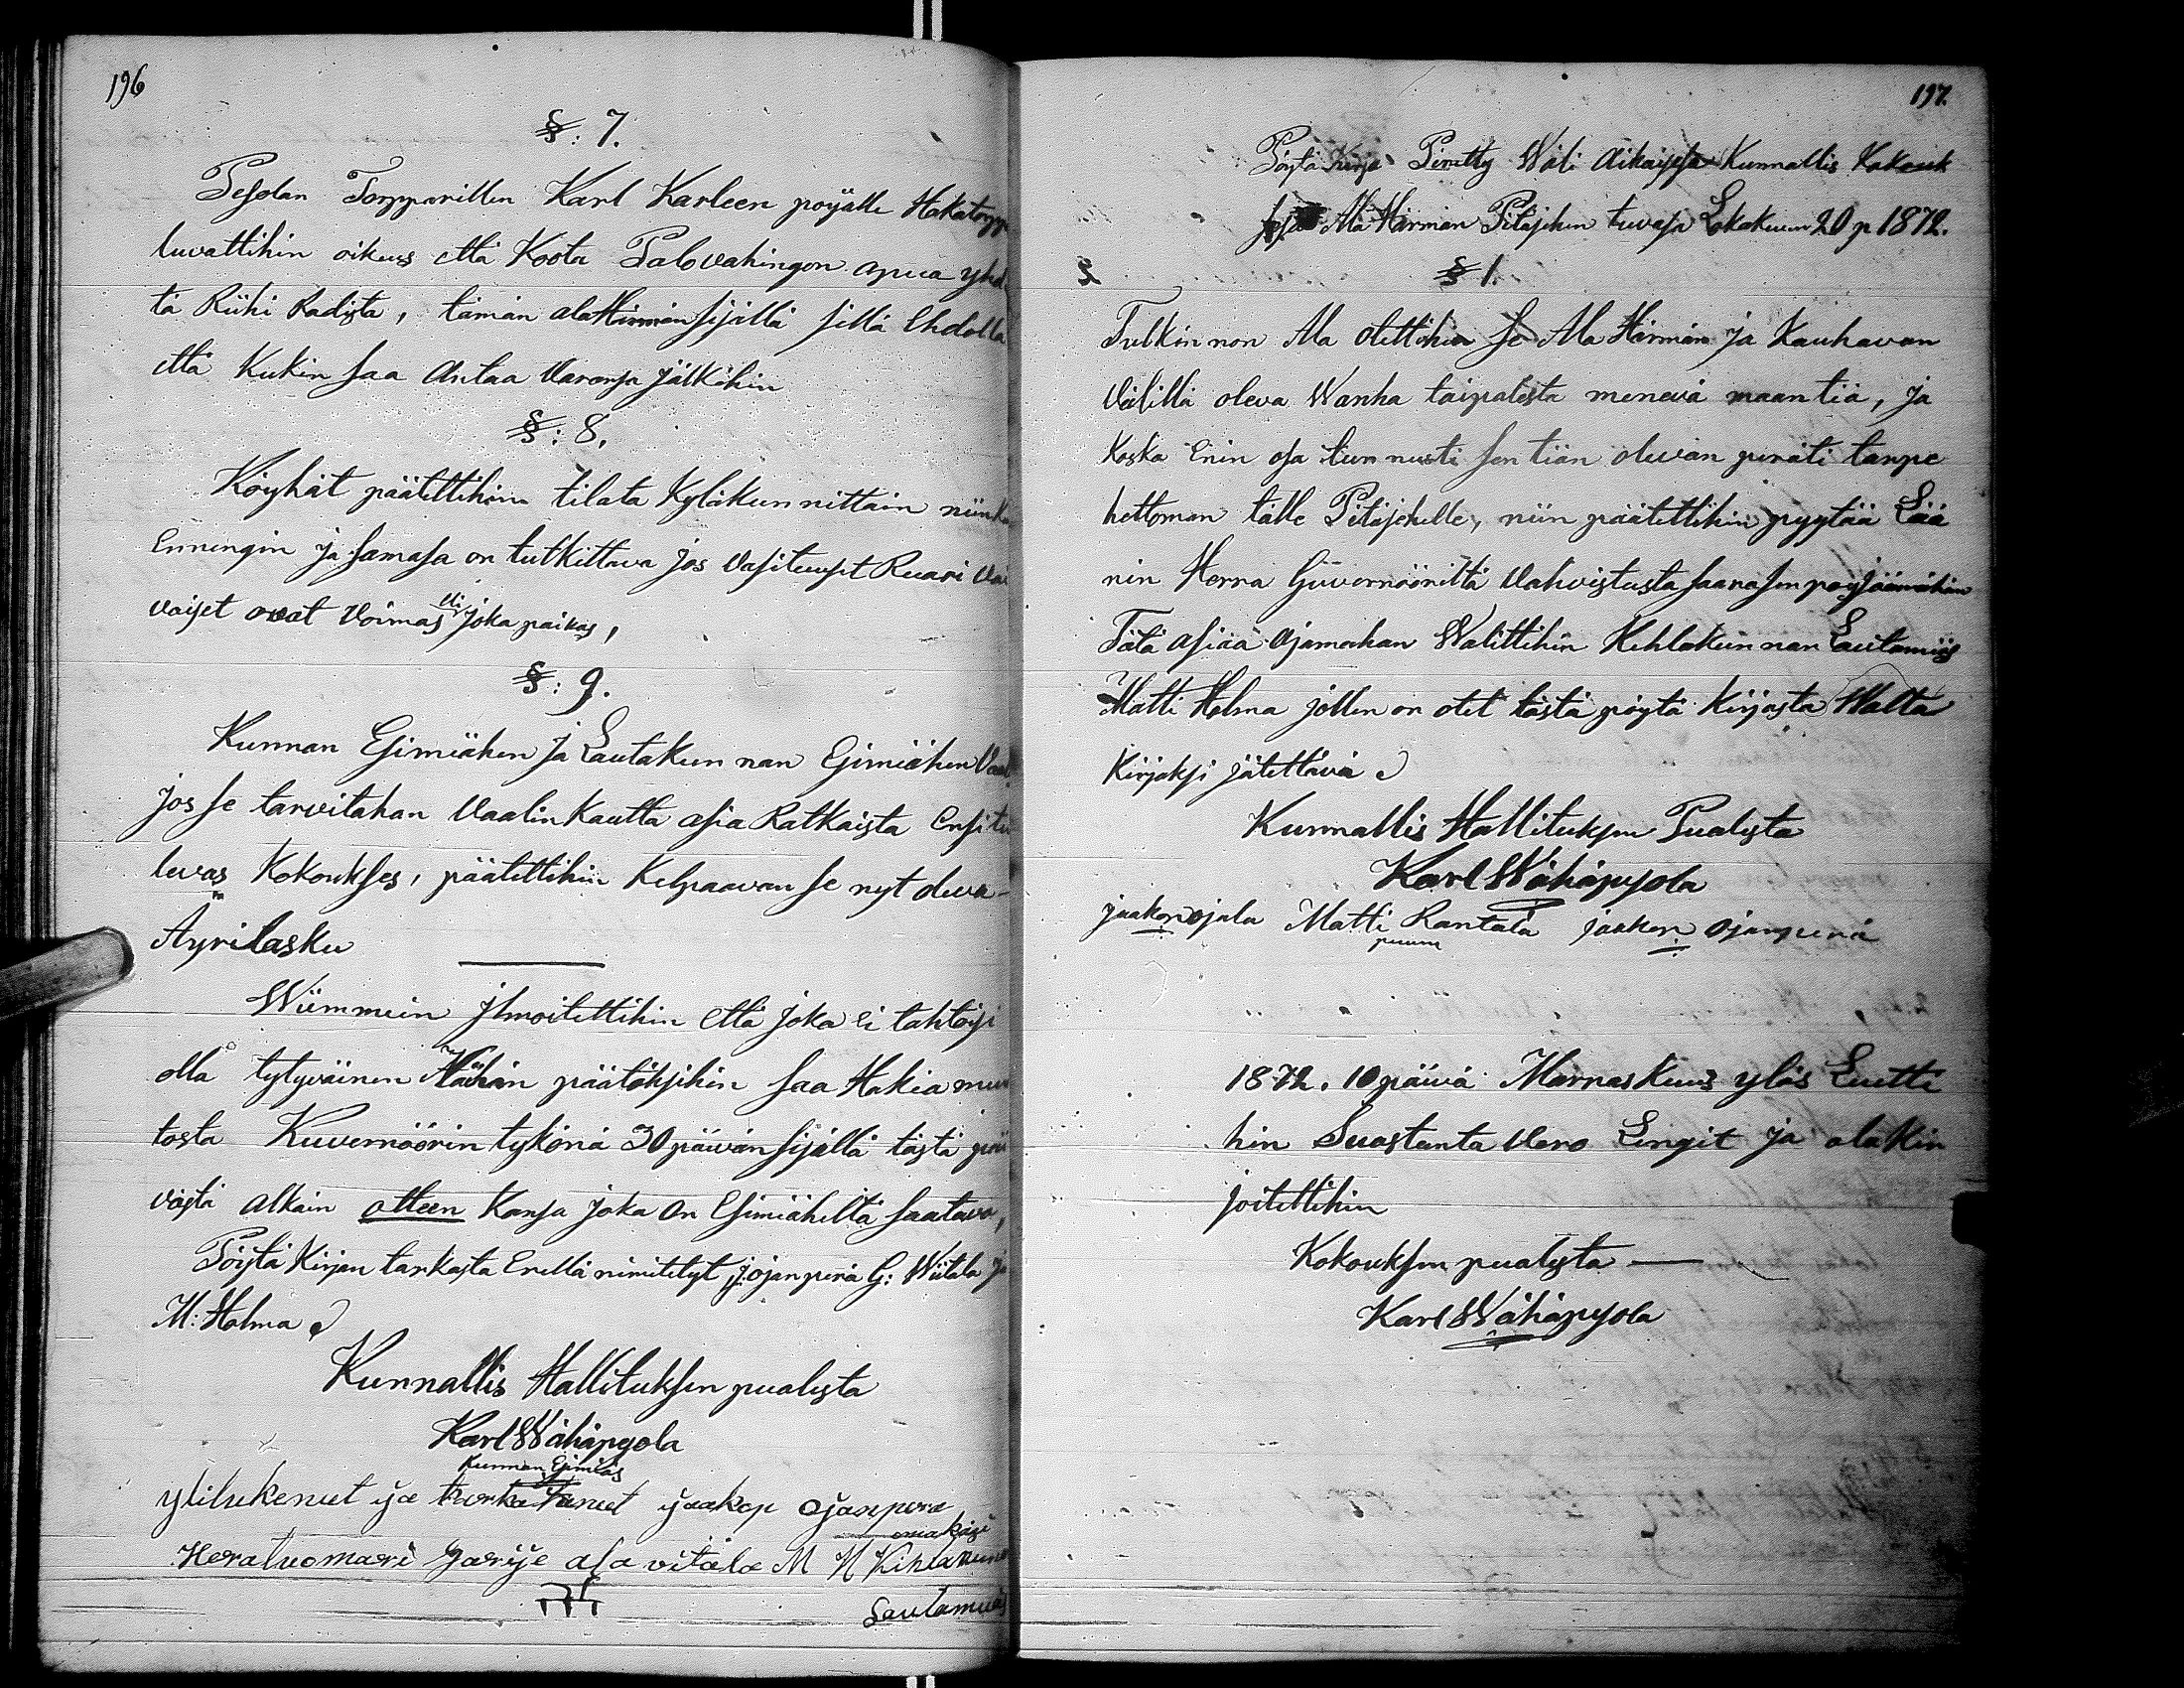 196
§: 7.
Pesolan Torpparillen Karl Karleen pojalle Hakatorpp
luvattihin oikeus että Koota Palovahingon apua yhd
tä Riihi Radista, tämän alaHirmän sisällä sillä Ehdolla
että Kukin saa Antaa Varansa jälkihin
§: 8.
Köyhät päätettihin tilata Kyläkunnittain niinku
Enningin ja samasa on tutkittava jos vasituuset Ruari vai
vaiset ovat voimas joka paikas,
§: 9.
Kunnan Esimiähen ja Lautakunnan Esimiähen Vaal
jos se tarvitahan Vaalin kautta asia Ratkaista Ensi tu
levas Kokoukses, päätettihin Kelpaavan se nyt oleva
Äyrilasku
Wiimmein jlmoitettihin että joka ei tahtoisi
olla tytyväinen Näihin päätöksihin saa Hakia muu
tosta Kuvernöörin tykönä 30 päivän sisällä tästä päi
västä alkain otteen Kansa joka on Esimiäheltä saatava,
Pöytä Kirjan tarkasta Erellä nimitetyt J: ojanperä G: Wiitala ja
M: Holma
Kunnallis Hallituksen puolesta
Karl Wähäpesola
Kunnan Esimiäs
ylilukenut ja tarkastanut jaakop ojanpera
omakäsi
Heratuomari ala vitala M H Kihlakunn
Lautamies
197.
Pöytä Kirja Piretty Wäli Aikaisesa Kunnallis Kokouk
sesa Ala Härmän Pitäjehen tuvasa Lokakuun 20 p 1872.
§ 1.
Tutkinnon Ala otettihin se Ala Härmän ja Kauhavan
välillä oleva Wanha taipalesta menevä maantiä, ja
Koska Enin osa tunnusti sen tiän olevan peräti tarpe
hettoman tälle Pitäjehelle, niin päätettihin pyytää Lää
nin Herra Guvernööriltä Vahvistusta saara sen poisjäämähän
Tätä asiaa ajamahan Walittihin Kihlakunnan Lautamiäs
Matti Holma jollen on otet tästä pöytä Kirjasta Walta
Kirjaksi jätettävä
Kunnallis Hallituksen Puolesta
Karl Wähäpesola
jaakop ojala Matti Rantala jaakop ojanperä
puum
1872. 10 päivä Marraskuus ylös Luetti
hin Suostunta Vero Lengit ja alakir
joitettihin
Kokouksen puolesta —
Karl Wähäpesola